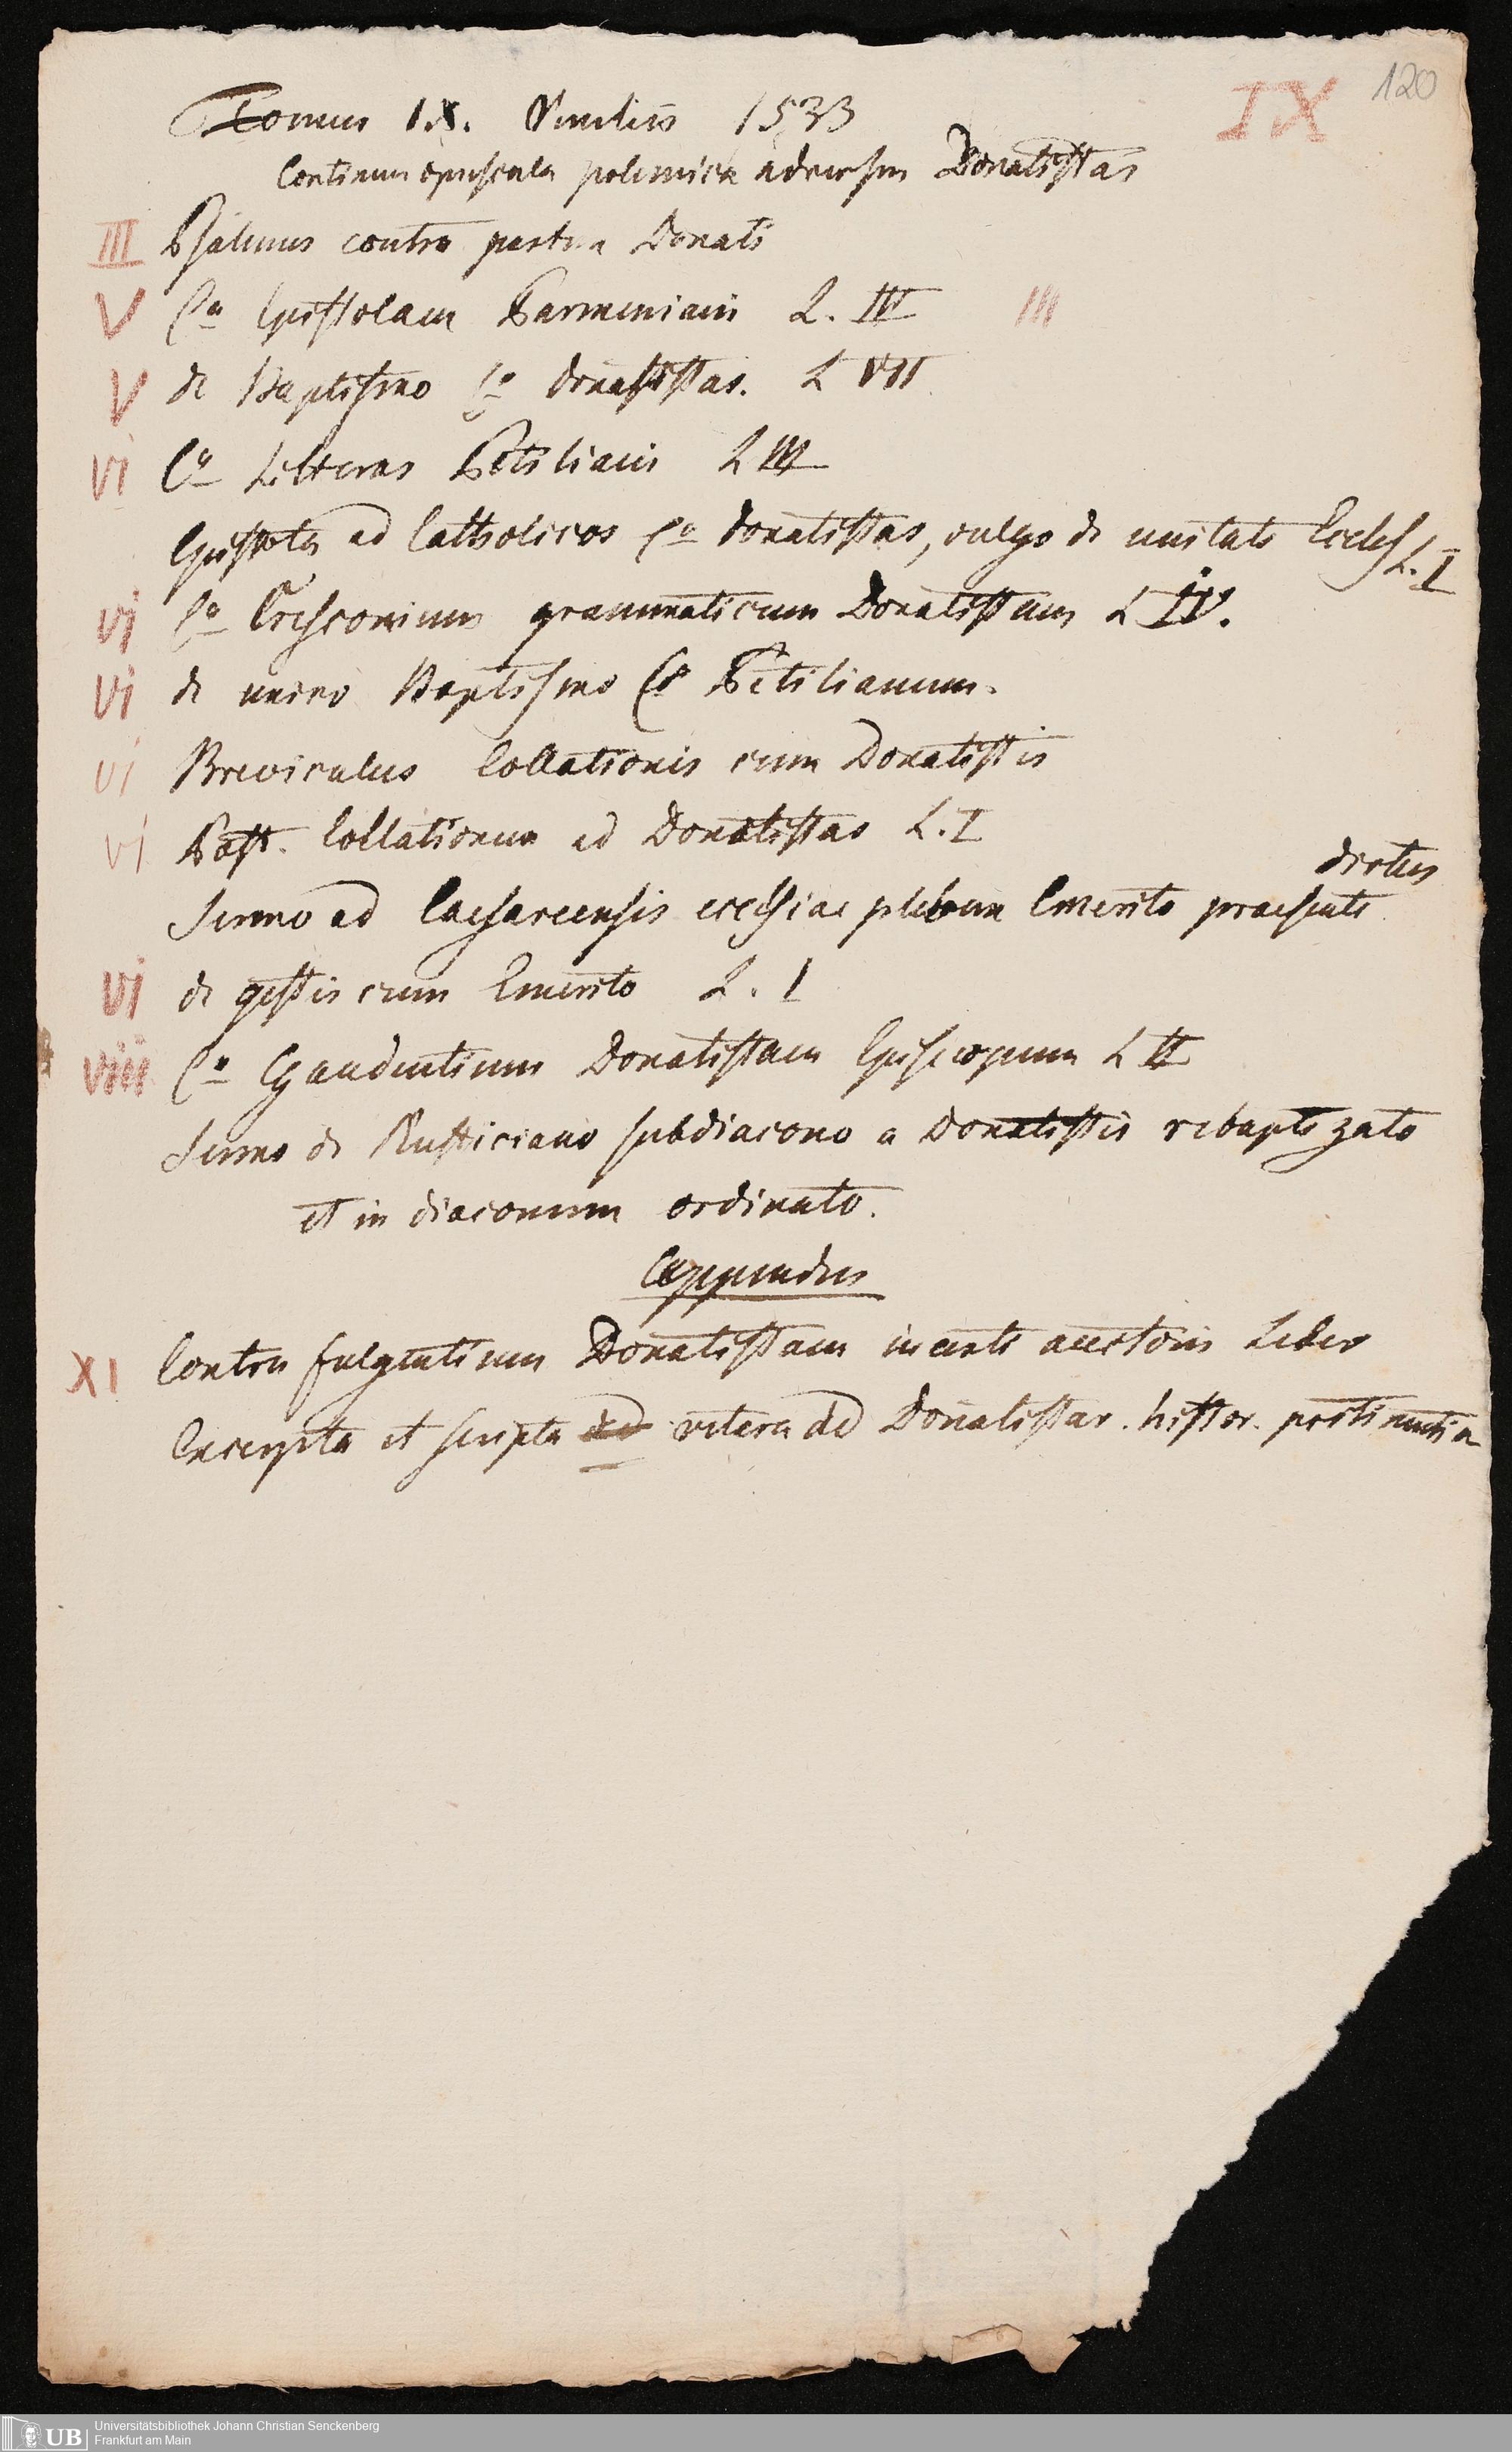 IX 120
Tomus IX. Venetiis 1533
Continens opuscula polemica adversus Donatistas
III Psalmus contra partem Donati
V Ca Epistolam Parmeniani L. IV III
V de Baptismo Ca donatistas. L VII
vi Ca Litteras Petiliani L III
Epistola ad Catholicos Ca donatistas, vulgo de unitate Eccles L. I
vi Ca Cresconium grammaticum Donatistam L IV.
vi de unico Baptismo Ca Petilianum.
vi Breviculus Collationis cum Donatistis
vi Post. Collationem ad Donatistas L. I
dictus
Sermo ad Caesareensis ecclesiae plebem Emerito praesente
vi de gestis cum Emerito L. I
viii Ca Gaudentium Donatistam Episcopum L II
Sermo de Rusticiano subdiacono a Donatistis rebaptizato
et in diaconum ordinato.
Appendix
XI Contra fulgentium Donatistam incerti auctoris Liber
Excerpta et scripta vetera ad Donatistar. histor. pertinentia
UB Universitätsbibliothek Johann Christian Senckenberg
Frankfurt am Main